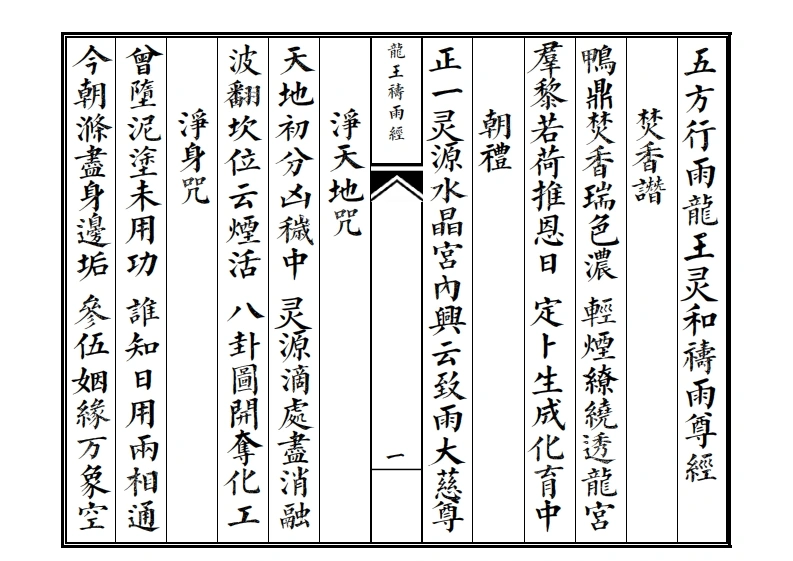 五方行雨龍王灵和禱雨尊經
焚香讚
鴨鼎焚香瑞色濃　輕煙繚繞透龍宮
羣黎若荷推恩日　定卜生成化育中
朝禮
正一灵源水晶宮內興云致雨大慈尊
龍王禱雨經
一
淨天地咒
天地初分凶穢中　灵源滴處盡消融
波翻坎位云煙活　八卦圖開奪化工
淨身咒
曾墮泥塗未用功　誰知日用兩相通
今朝滌盡身邊垢　參伍姻緣万象空